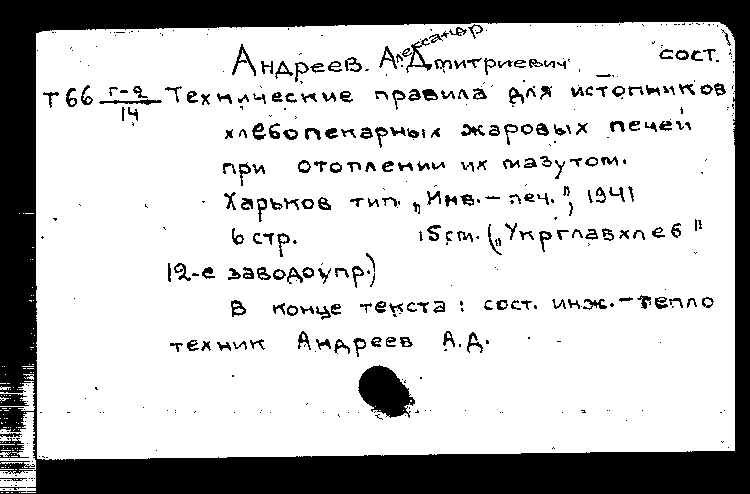 Александр
Андреев. А. Дмитриевич сост.
Т 66 г-9/14 Технические правила для истопников
хлебопекарных жаровых печей
при отоплении их мазутом.
Харьков тип. „Инв.-печ.", 1941
6 стр. 15 см. („Укрглавхлеб"
12-е заводоупр.)
В конце текста: сост. инж.-тепло
техник Андреев А.Д.